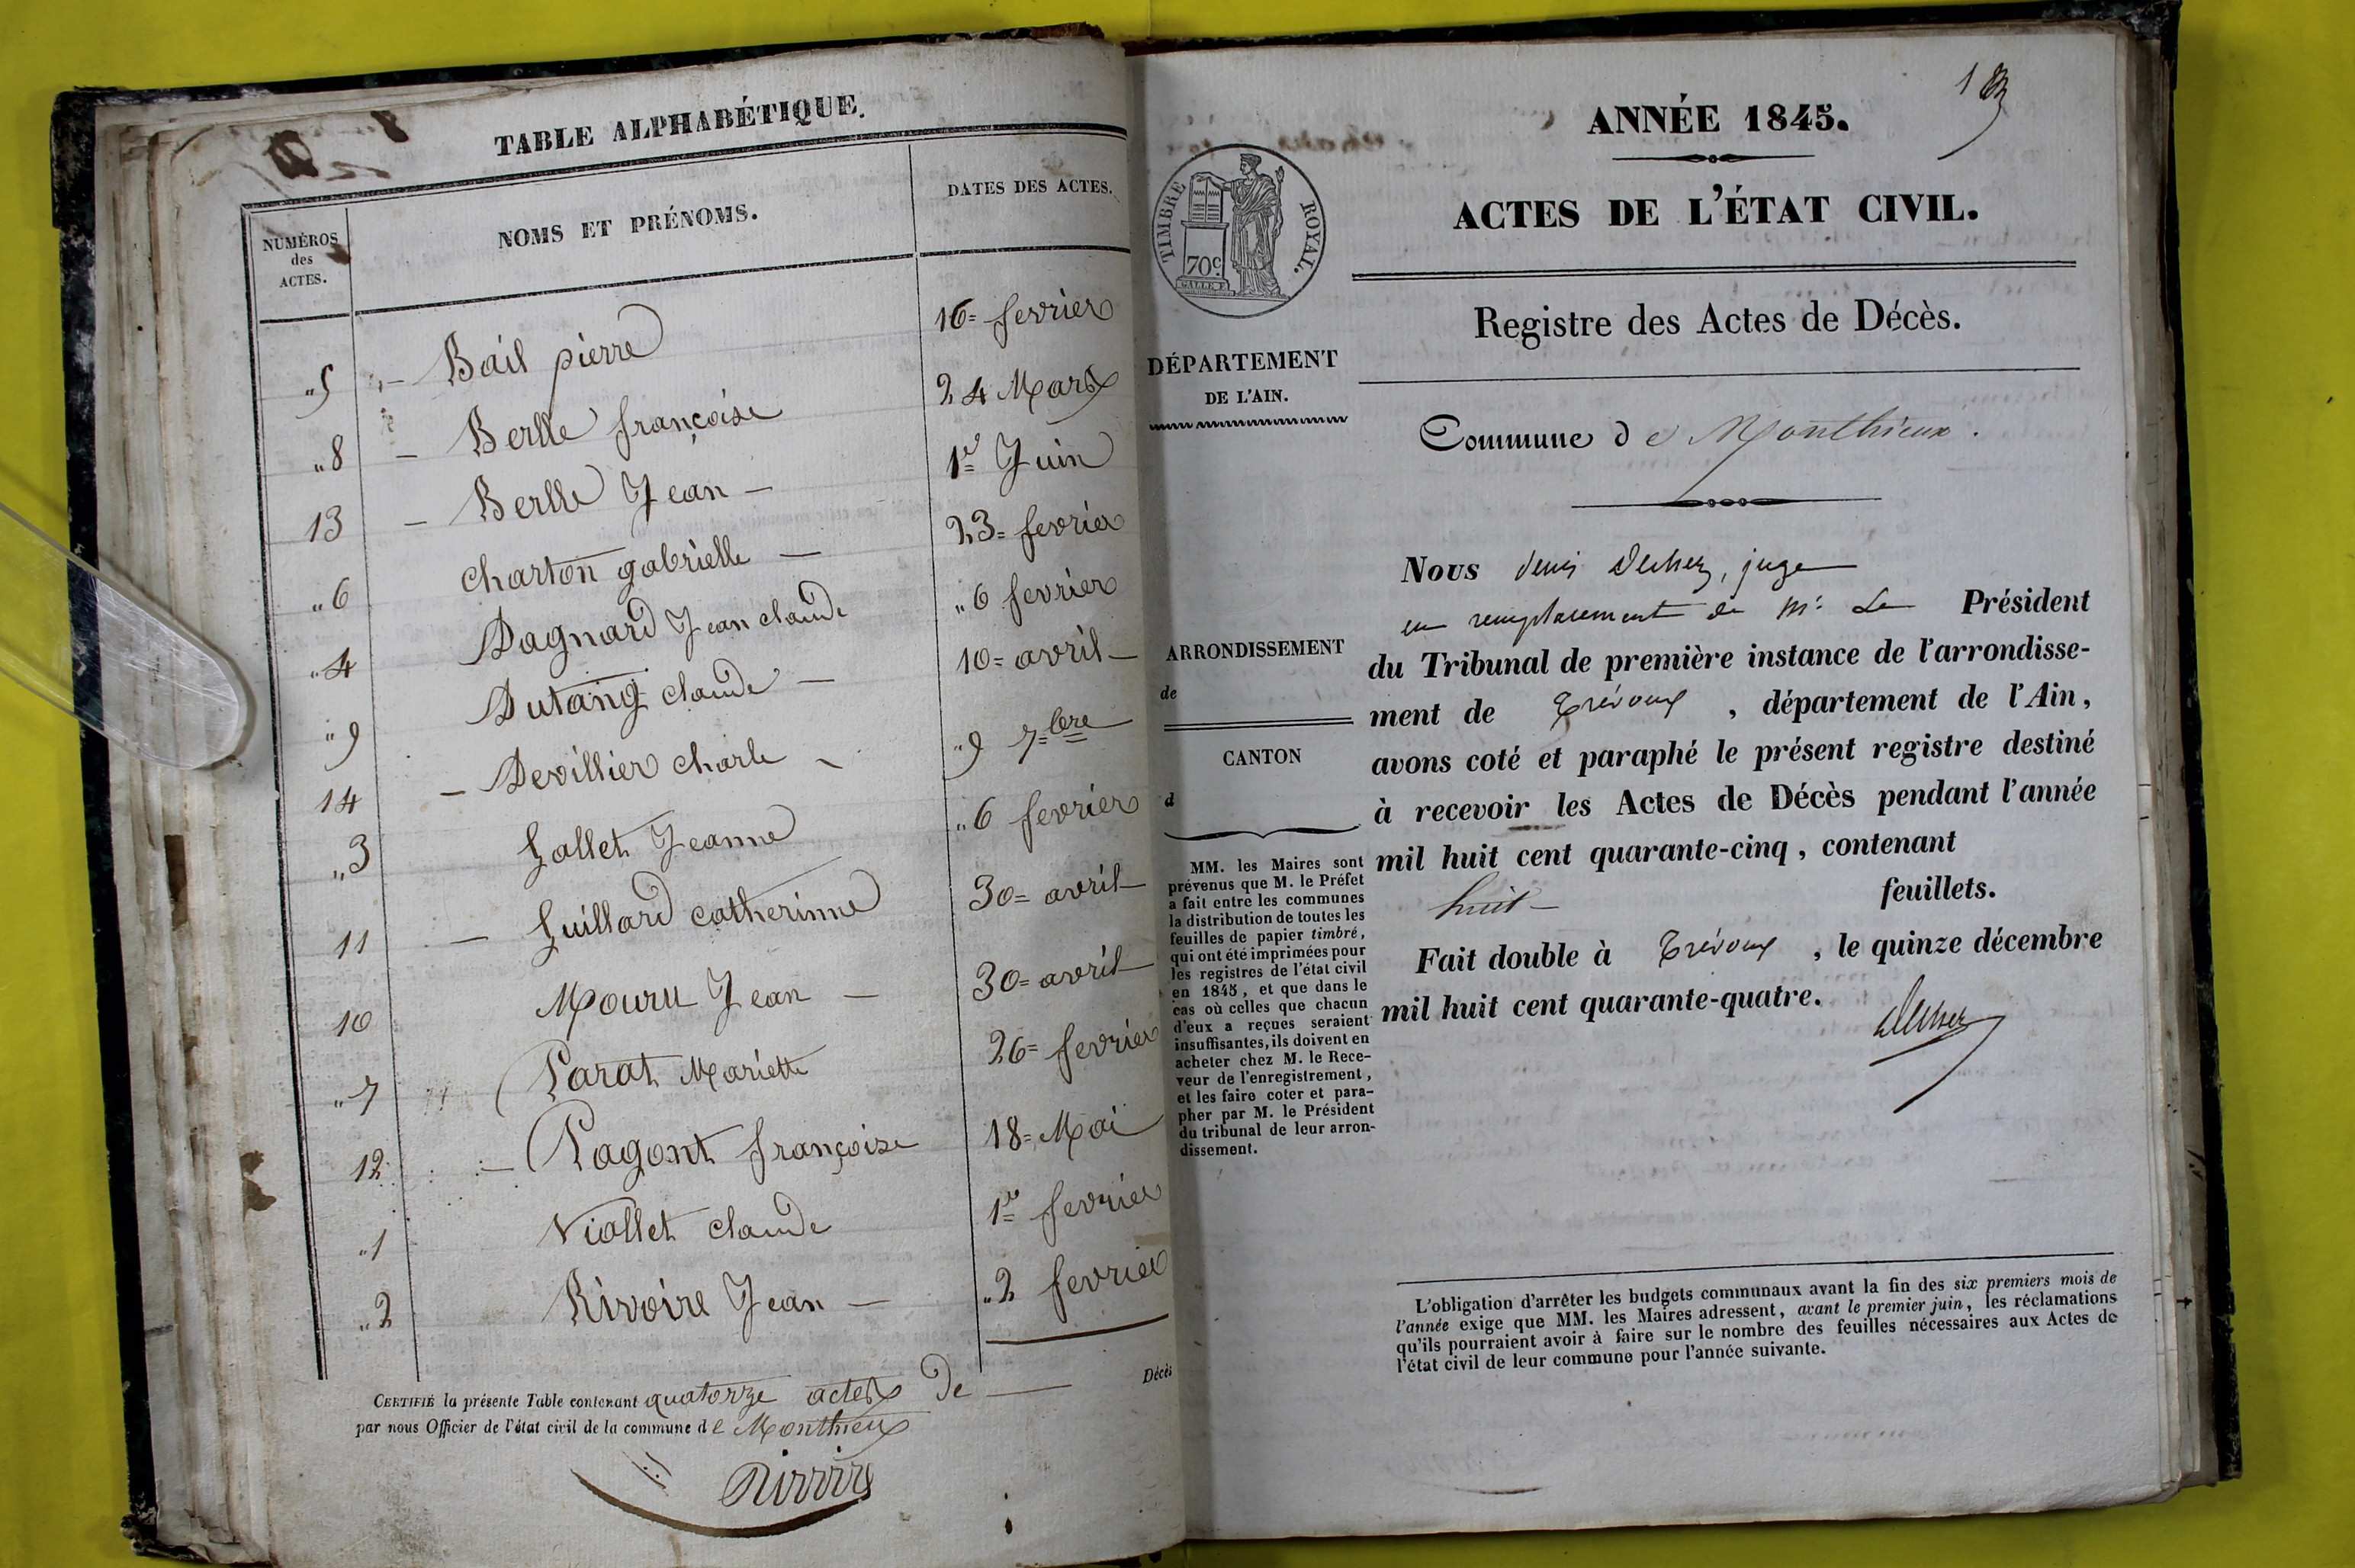 TABLE ALPHABÉTIQUE.
NUMÉROS des ACTES. NOMS ET PRÉNOMS. DATES DES ACTES.
„5 – Bail pierre 16= fevrier
„8 – Berlle françoise 24 Mars
13 – Berlle Jean – 1er Juin
„6 Charton gabrielle – 23= fevrier
„4 Dagnard Jean claude „6 fevrier
„9 Dutang claude – 10= avril –
14 – Devillier charle – „9 7=bre
„3 Gallet Jeanne „6 fevrier
11 – Guillard catherinne 30= avril –
10 Mouru Jean – 30= avril –
„7 Parat Mariette 26= fevrier
12 – Pagont françoise 18= Mai
„1 Viollet claude 1er fevrier
„2 Rivoire Jean – „2 fevrier
CERTIFIÉ la présente Table contenant quatorze actes de — Décès
par nous Officier de l'état civil de la commune de Monthieux
1
ANNÉE 1845.
ACTES DE L'ÉTAT CIVIL.
TIMBRE ROYAL.
70c.
Registre des Actes de Décès.
DÉPARTEMENT
DE L'AIN.
Commune de Monthieux.
ARRONDISSEMENT
de
CANTON
d
MM. les Maires sont
prévenus que M. le Préfet
a fait entre les communes
la distribution de toutes les
feuilles de papier timbré,
qui ont été imprimées pour
les registres de l'état civil
en 1845, et que dans le
cas où celles que chacun
d'eux a reçues seraient
insuffisantes, ils doivent en
acheter chez M. le Rece-
veur de l'enregistrement,
et les faire coter et para-
pher par M. le Président
du tribunal de leur arron-
dissement.
Nous denis juge
en remplacement de Mr. Le Président
du Tribunal de première instance de l'arrondisse-
ment de Trévoux , département de l'Ain,
avons coté et paraphé le présent registre destiné
à recevoir les Actes de Décès pendant l'année
mil huit cent quarante-cinq, contenant
huit – feuillets.
Fait double à Trévoux , le quinze décembre
mil huit cent quarante-quatre.
L'obligation d'arrêter les budgets communaux avant la fin des six premiers mois de
l'année exige que MM. les Maires adressent, avant le premier juin, les réclamations
qu'ils pourraient avoir à faire sur le nombre des feuilles nécessaires aux Actes de
l'état civil de leur commune pour l'année suivante.